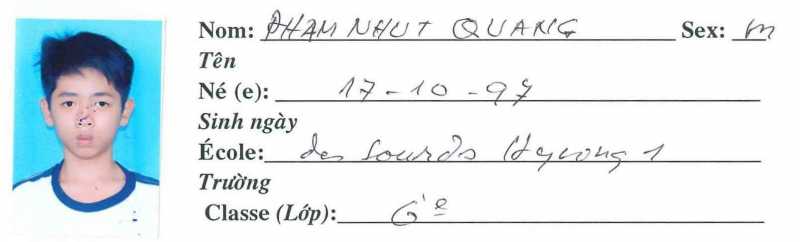 Nom: PHAM NHUT QUANG Sex: m
Tên
Né (e): 17-10-97
Sinh ngày
École: des Sourds 1
Trường
Classe (Lớp): 6e